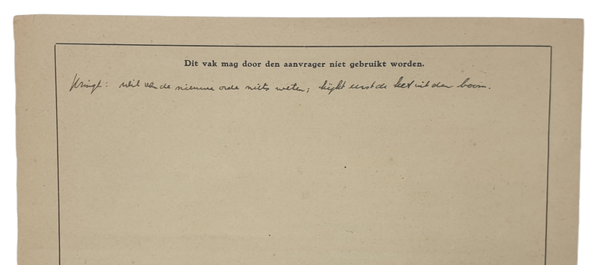 Dit vak mag door den aanvrager niet gebruikt worden.
wil van de nieuwe orde niets weten; kijkt eerst de kat uit den boom.